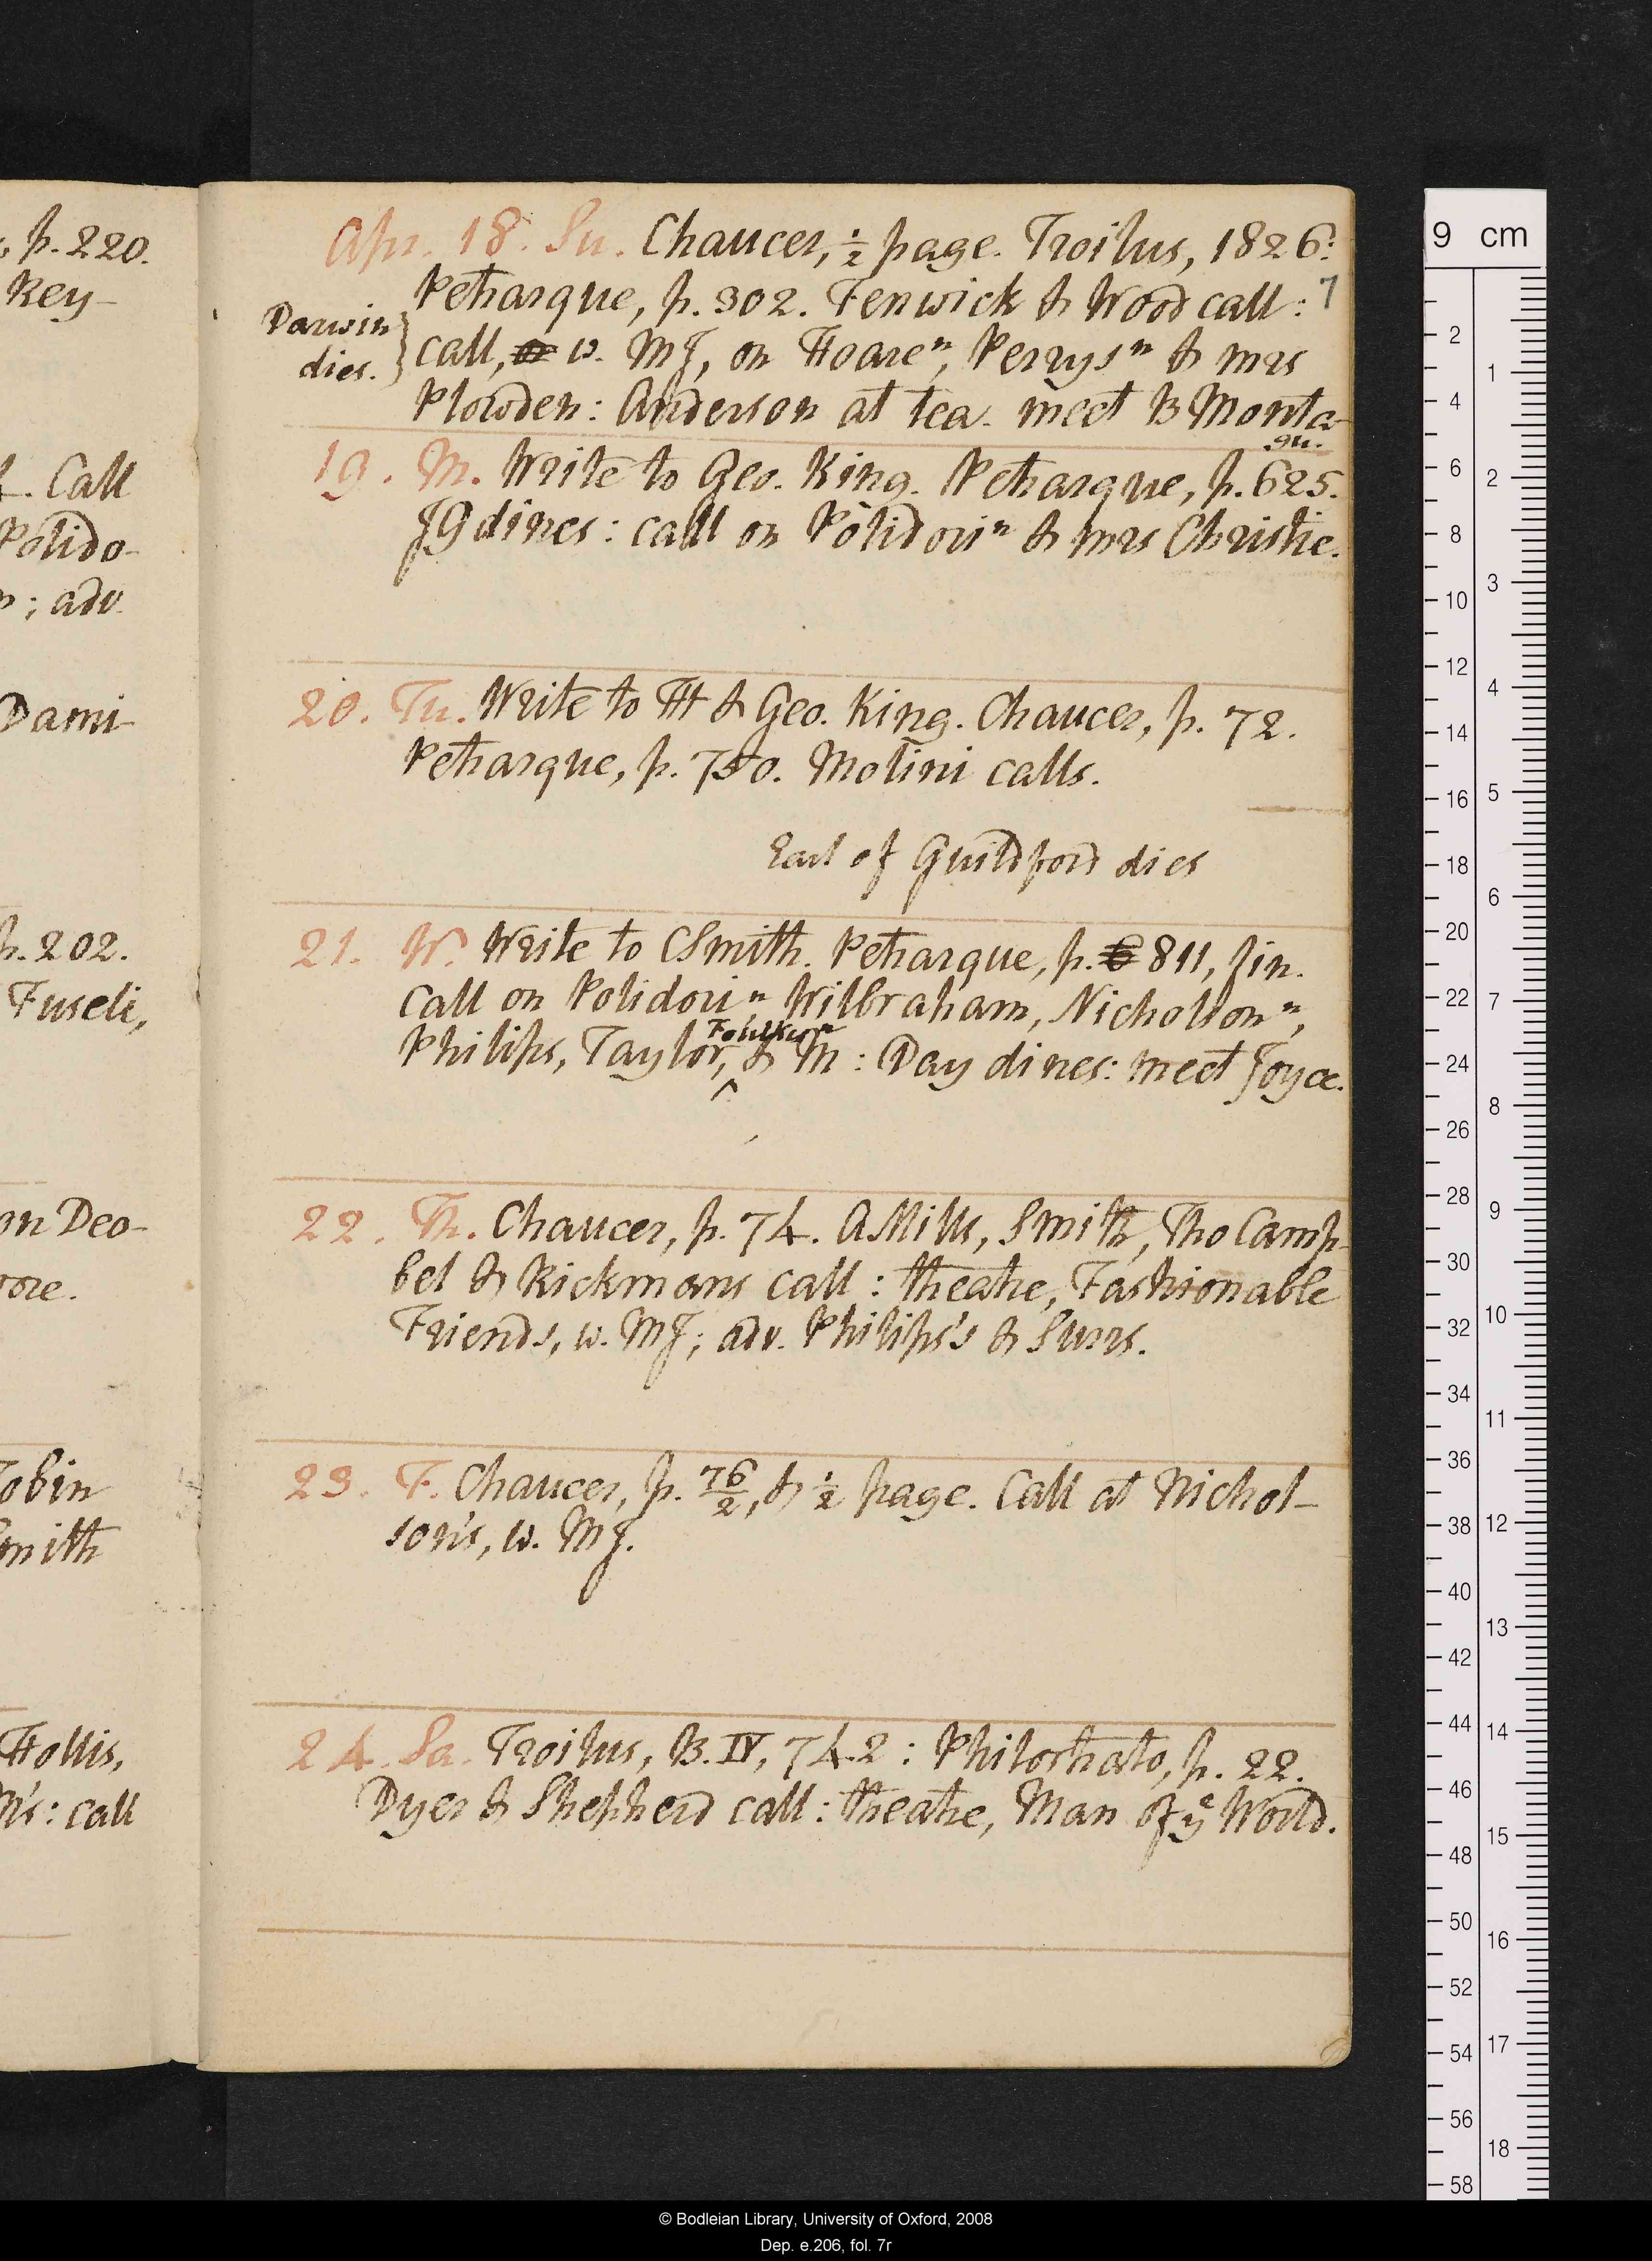 , p. 220.
Key-
4. Call
Polido-
n ; adv.
Dami-
p. 202.
Fuseli,
on Deo-
ore.
Tobin
Smith
Hollis,
M's : call
Apr. 18. Su. Chaucer, ½ page. Troilus, 1826:
7
Petrarque, p. 302. Fenwick & Wood call :
Darwin
dies.
call, w. MJ, on Hoare ⁿ, Perrys ⁿ & mrs
Plowden : Anderson at tea. meet B Monta-
gu.
19. M. Write to Geo. King. Petrarque, p. 625.
JG dines : call on Polidori ⁿ & mrs Christie.
20. Tu. Write to TH & Geo. King. Chaucer, p. 72.
Petrarque, p. 750. Molini calls.
Earl of Guildford dies
21. W. Write to CSmith. Petrarque, p. 811, fin.
Call on Polidori ⁿ, Wilbraham, Nicholson ⁿ,
Foulkes ⁿ
Philips, Taylor, & M : Day dines : meet Joyce.
22. Th. Chaucer, p. 74. AMills, Smith, Tho Camp-
bel & Rickmans call : theatre, Fashionable
Friends, w. MJ; adv. Philips's & Surrs.
23. F. Chaucer, p. 76/2, & ½ page. Call at Nichol-
son's, w. MJ.
24. Sa. Troilus, B. IV, 742 : Philostrato, p. 22.
Dyer & Shepherd call : theatre, Man of yᵉ World.
9 cm
2
4
6
8
10
12
14
16
18
20
22
24
26
28
30
32
34
36
38
40
42
44
46
48
50
52
54
56
58
1
2
3
4
5
6
7
8
9
10
11
12
13
14
15
16
17
18
© Bodleian Library, University of Oxford, 2008
Dep. e.206, fol. 7r